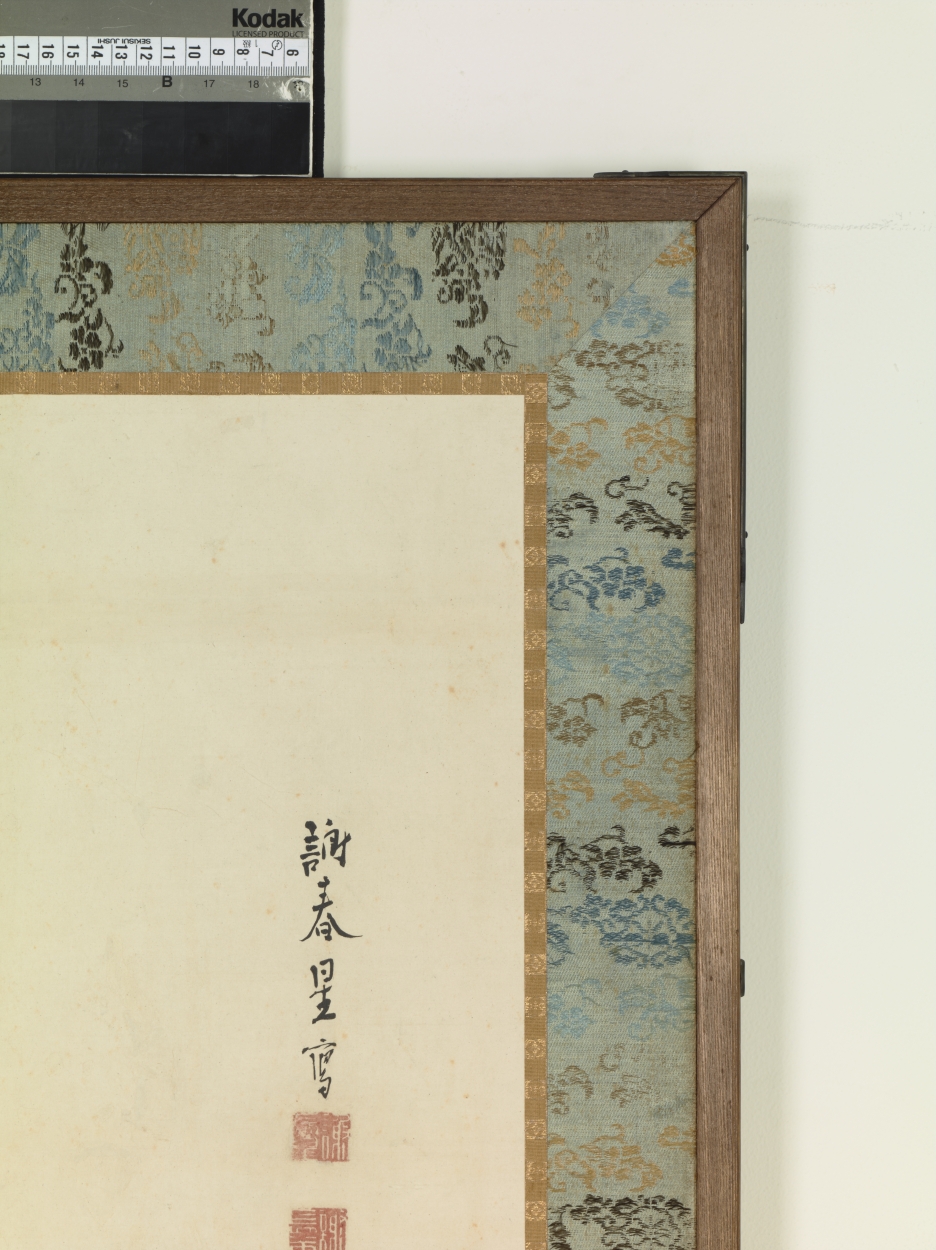 Kodak
LICENSED PRODUCT
SEKISUI JUSHI
17 16 15 14 13 12 11 10 9 8 7 6
13 14 15 B 17 18
謝春星寫